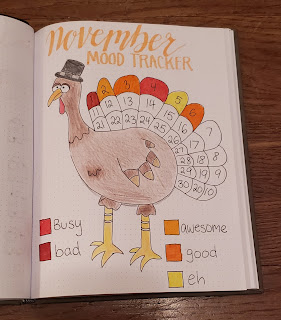 November
MOOD TRACKER
1 2 3 4 5 6 7
11 12 13 14 15 16 17
21 22 23 24 25 26 27
28 18 8
29 19 9
30 20 10
Busy
bad
awesome
good
eh